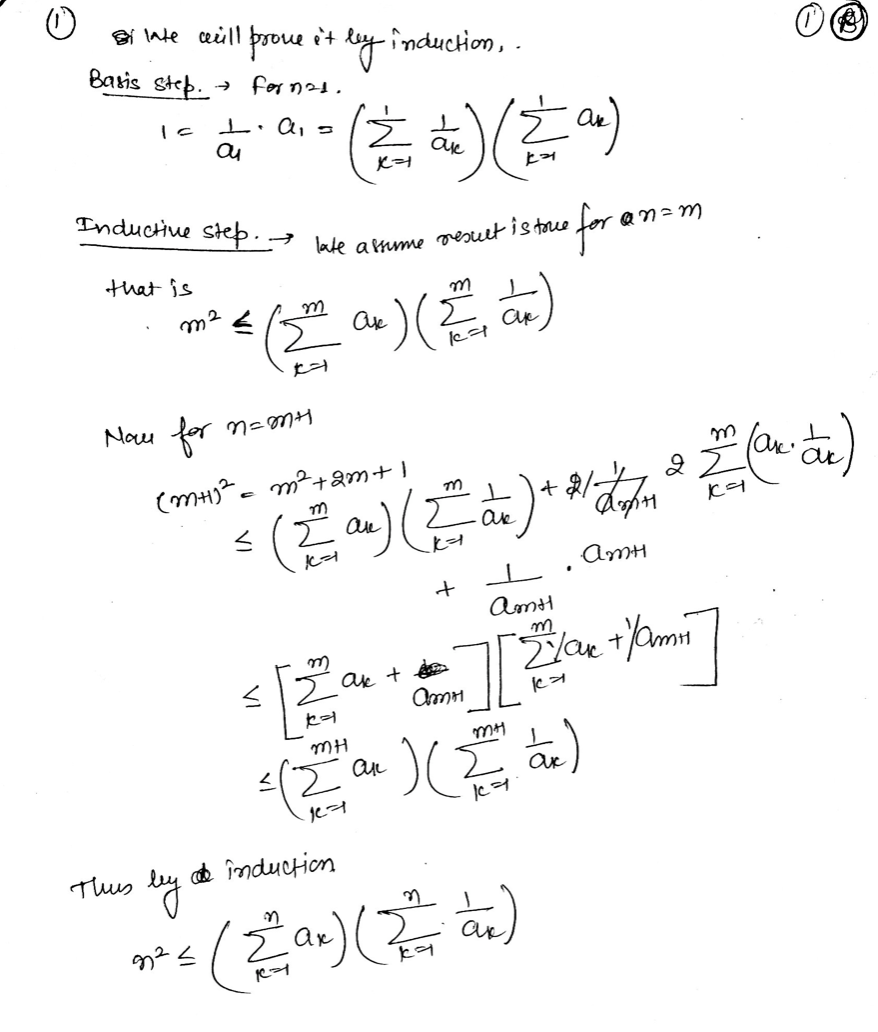 ① ①
We will prove it by induction,.
Basis step. → For n=1.
1 = 1/a₁ · a₁ = (∑_{k=1}^{1} 1/aₖ)(∑_{k=1}^{1} aₖ)
Inductive step. → We assume result is true for n=m
that is
m² ≤ (∑_{k=1}^{m} aₖ)(∑_{k=1}^{m} 1/aₖ)
Now for n=m+1
(m+1)² = m²+2m+1
≤ (∑_{k=1}^{m} aₖ)(∑_{k=1}^{m} 1/aₖ) + 2 ∑_{k=1}^{m} (aₖ · 1/aₖ)
+ 1/aₘ₊₁ · aₘ₊₁
≤ [∑_{k=1}^{m} aₖ + aₘ₊₁][∑_{k=1}^{m} 1/aₖ + 1/aₘ₊₁]
≤ (∑_{k=1}^{m+1} aₖ)(∑_{k=1}^{m+1} 1/aₖ)
Thus by induction
n² ≤ (∑_{k=1}^{n} aₖ)(∑_{k=1}^{n} 1/aₖ)